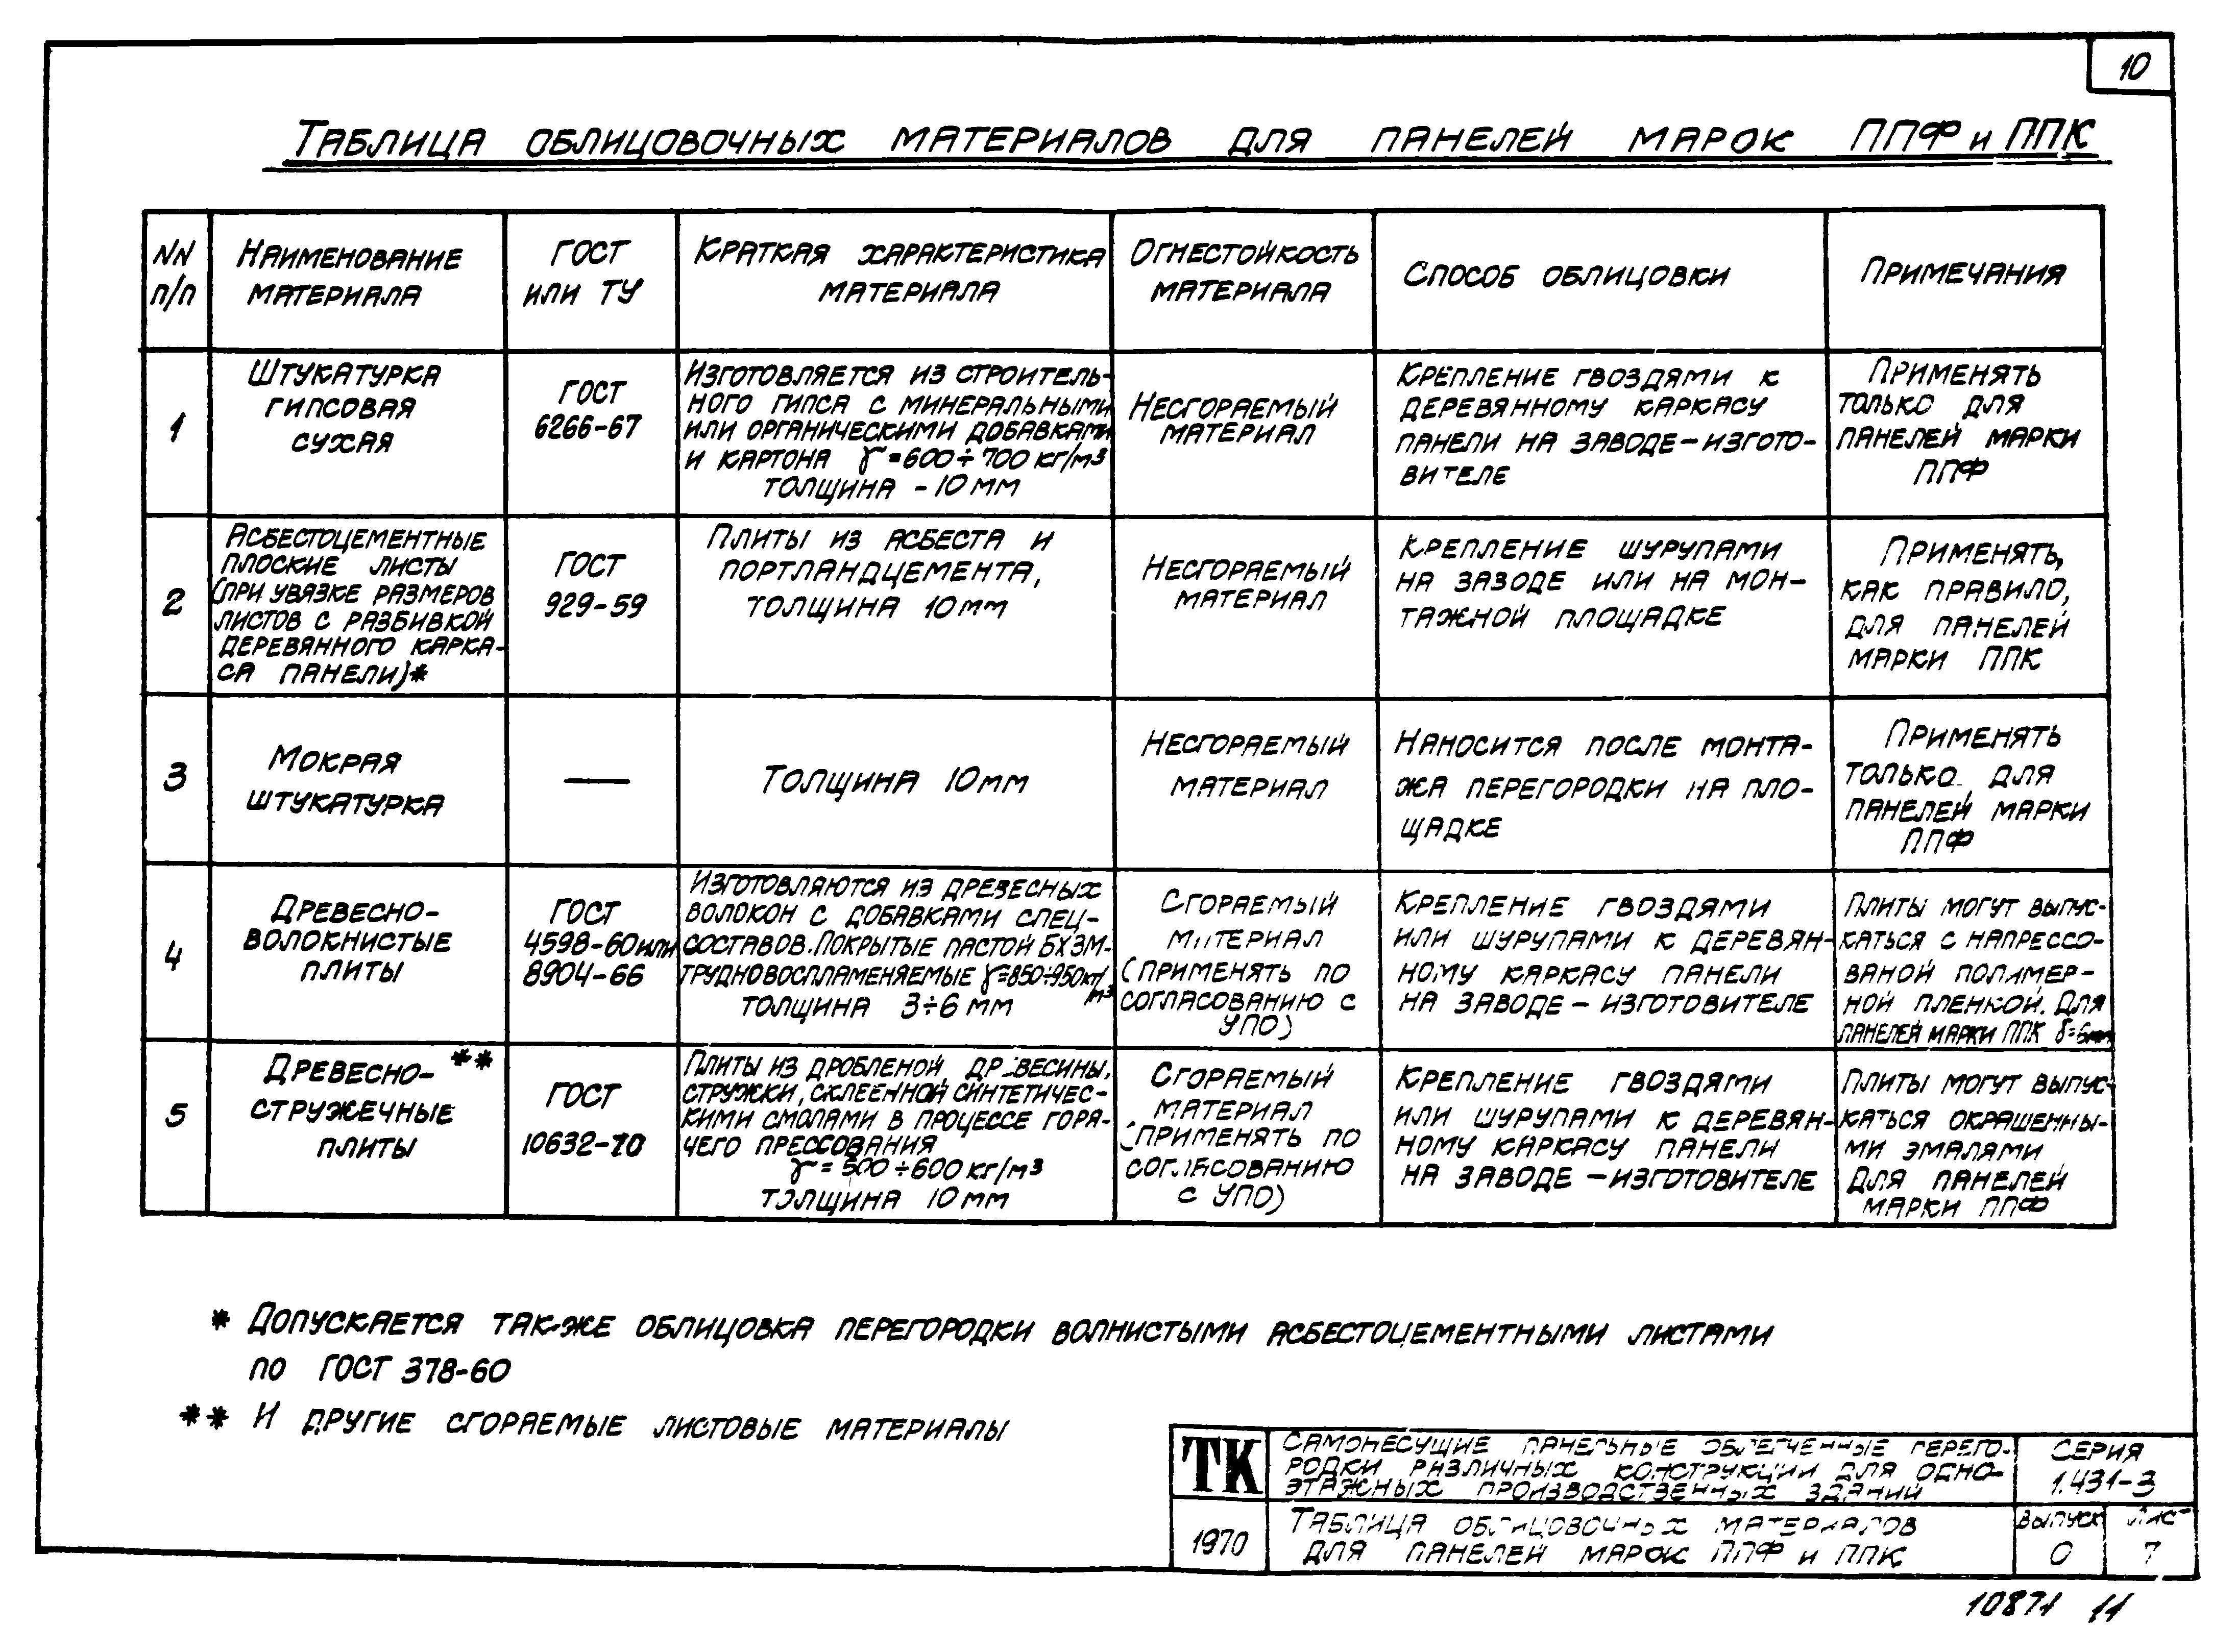 10
Таблица облицовочных материалов для панелей марок ППФ и ППК
NN п/п
Наименование материала
ГОСТ или ТУ
Краткая характеристика материала
Огнестойкость материала
Способ облицовки
Примечания
1
Штукатурка
гипсовая
сухая
ГОСТ
6266-67
Изготовляется из строитель-
ного гипса с минеральными
или органическими добавками
и картона γ=600÷700 кг/м³
толщина - 10 мм
Несгораемый
материал
Крепление гвоздями к
деревянному каркасу
панели на заводе-изгото-
вителе
Применять
только для
панелей марки
ППФ
2
Асбестоцементные
плоские листы
(при увязке размеров
листов с разбивкой
деревянного карка-
са панели)*
ГОСТ
929-59
Плиты из асбеста и
портландцемента,
толщина 10 мм
Несгораемый
материал
Крепление шурупами
на заводе или на мон-
тажной площадке
Применять,
как правило,
для панелей
марки ППК
3
Мокрая
штукатурка
—
Толщина 10 мм
Несгораемый
материал
Наносится после монта-
жа перегородки на пло-
щадке
Применять
только для
панелей марки
ППФ
4
Древесно-
волокнистые
плиты
ГОСТ
4598-60 или
8904-66
Изготовляются из древесных
волокон с добавками спец-
составов. Покрытые пастой БХЗМ-
трудновоспламеняемые γ=850÷950 кг/м³
толщина 3÷6 мм
Сгораемый
материал
(применять по
согласованию с
УПО)
Крепление гвоздями
или шурупами к деревян-
ному каркасу панели
на заводе-изготовителе
Плиты могут выпус-
каться с напрессо-
ваной полимер-
ной пленкой. Для
панелей марки ППК δ=6мм
5
Древесно- **
стружечные
плиты
ГОСТ
10632-70
Плиты из дробленой древесины,
стружки, склеенной синтетичес-
кими смолами в процессе горя-
чего прессования
γ=500÷600 кг/м³
толщина 10 мм
Сгораемый
материал
(применять по
согласованию
с УПО)
Крепление гвоздями
или шурупами к деревян-
ному каркасу панели
на заводе-изготовителе
Плиты могут выпус-
каться окрашенны-
ми эмалями
для панелей
марки ППФ
* Допускается так-же облицовка перегородки волнистыми асбестоцементными листами
по ГОСТ 378-60
** И другие сгораемые листовые материалы
ТК
1970
Самонесущие панельные облегченные перего-
родки различных конструкции для одно-
этажных производственных зданий
Серия
1.431-3
Таблица облицовочных материалов
для панелей марок ППФ и ППК
Выпуск
0
Лист
7
10871 11